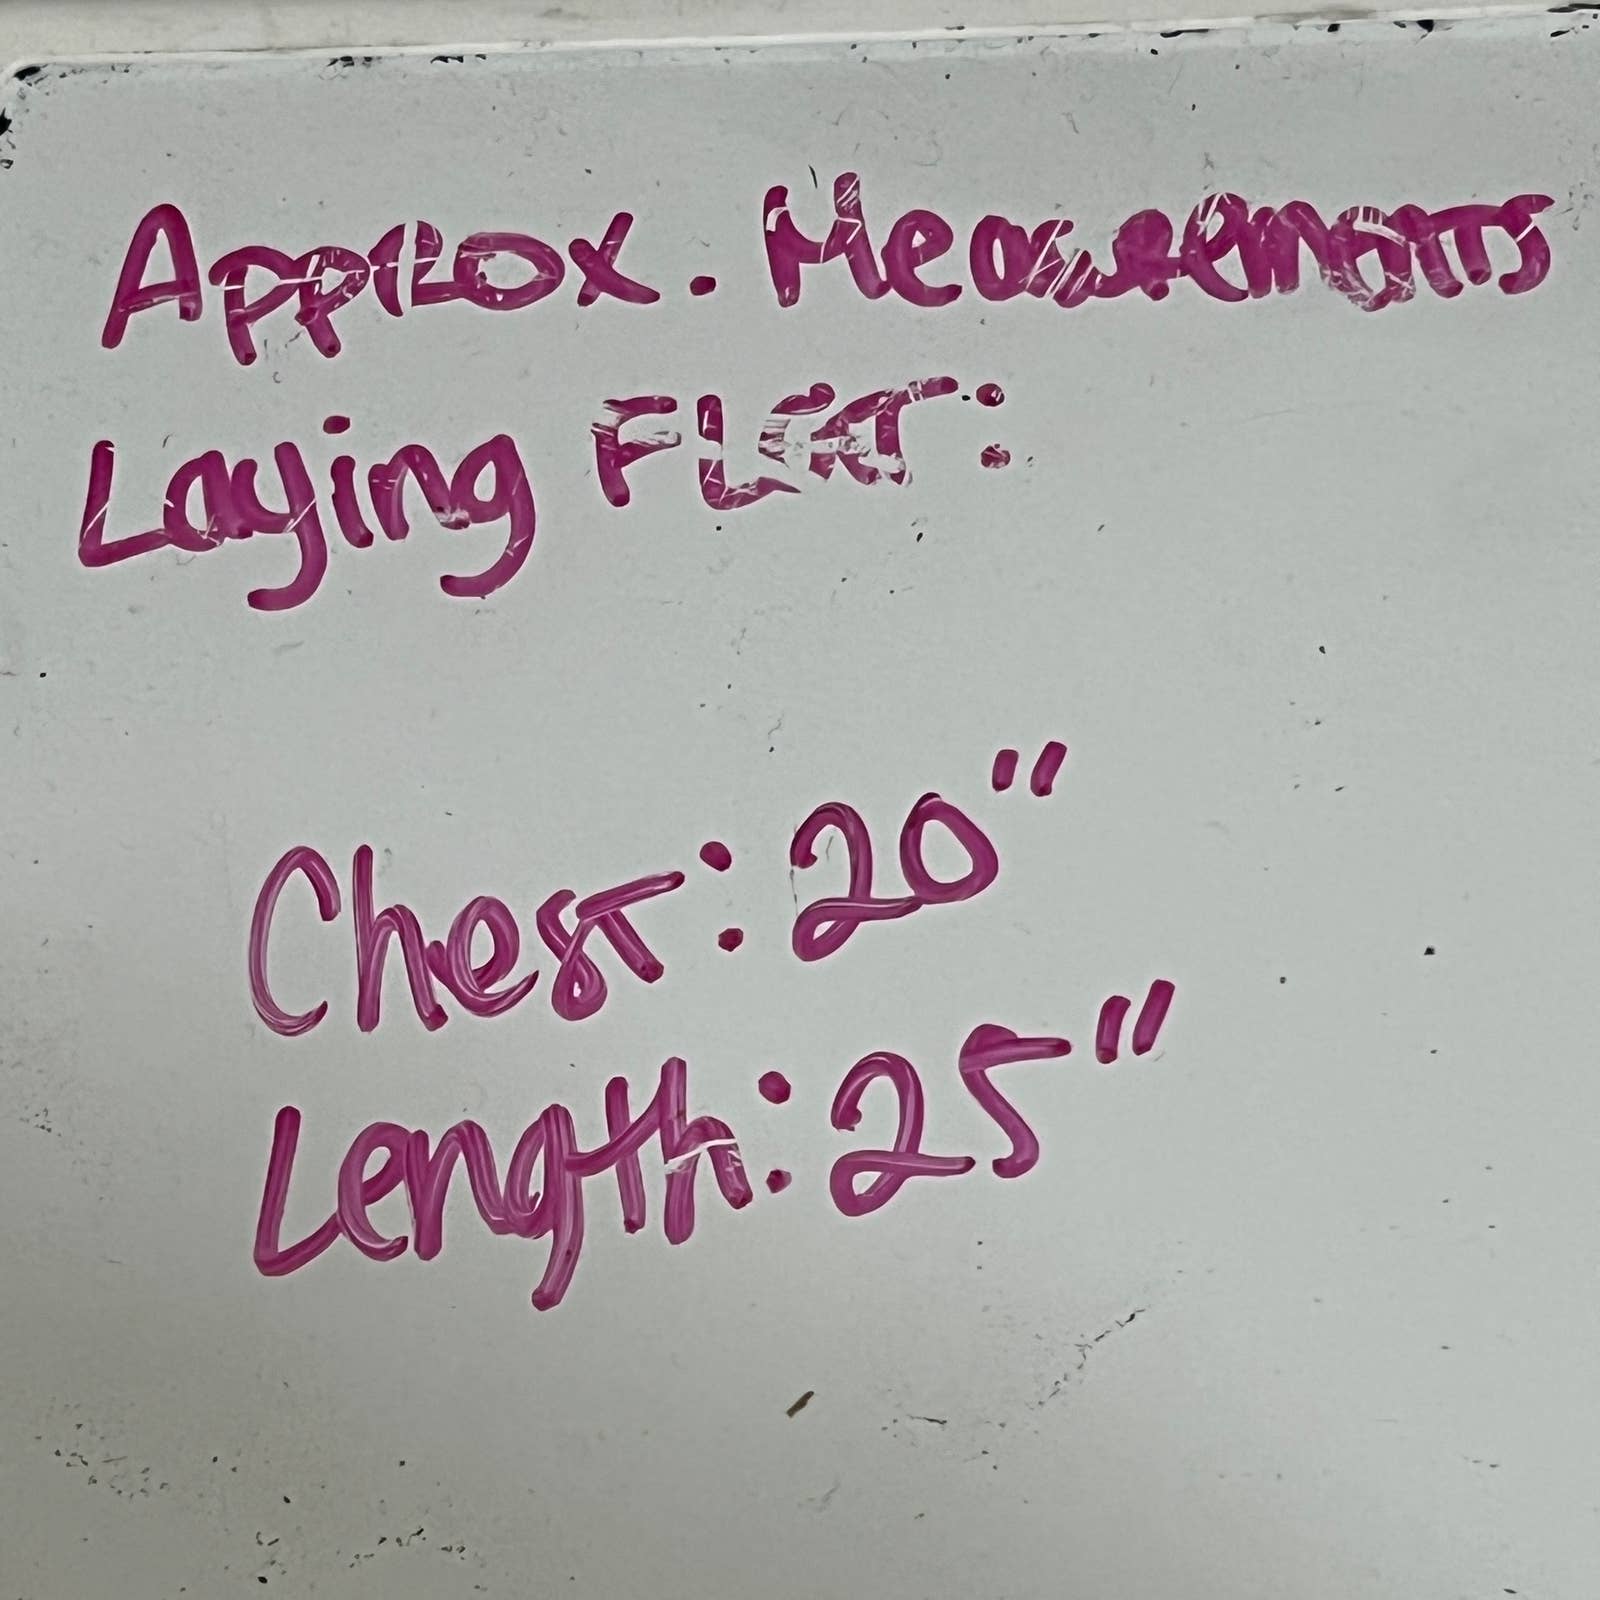 Approx. Measurements
Laying FLAT:
Chest: 20"
Length: 25"